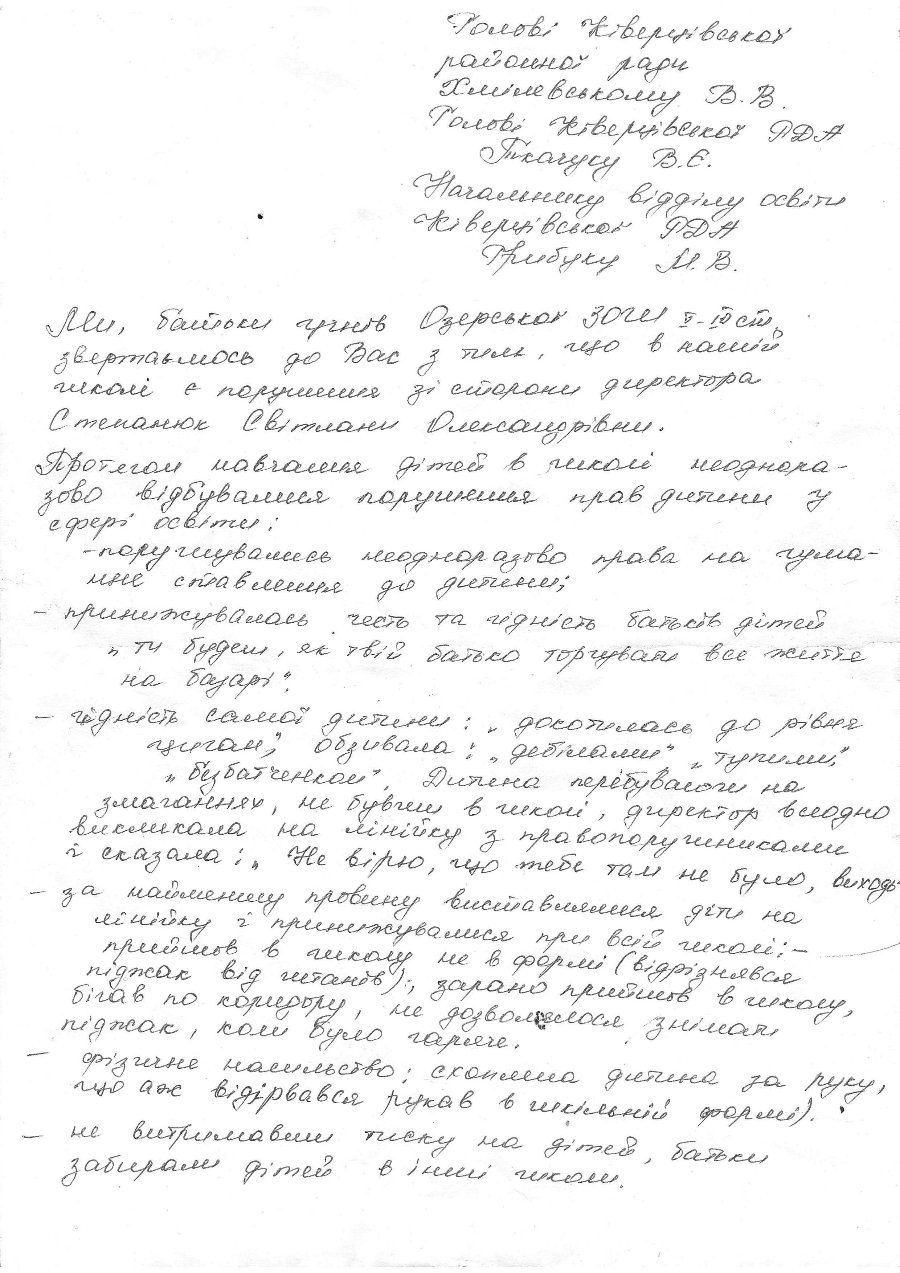 Голові Ківерцівської
районної ради
Хмілевському В.В.
Голові Ківерцівської РДА
Ткачуку В.Є.
Начальнику відділу освіти
Ківерцівської РДА
Грибуку М.В.
Ми, батьки учнів Озерської ЗОШ II-III ст.
звертаємось до Вас з тим, що в нашій
школі є порушення зі сторони директора
Степанюк Світлани Олександрівни.
Протягом навчання дітей в школі неоднора-
зово відбувалися порушення прав дитини у
сфері освіти:
-порушувались неодноразово права на гума-
нне ставлення до дитини;
- принижувалась честь та гідність батьків дітей
„ти будеш, як твій батько торгувати все життя
на базарі".
- гідність самої дитини: „докотилась до рівня
циган", обзивала: „дебілами", „тупими",
„безбатченком". Дитина перебуваючи на
змаганнях, не бувши в школі, директор всеодно
викликала на лінійку з правопорушниками
і сказала: „Не вірю, що тебе там не було, виходь
- за найменшу провину виставлялися діти на
лінійку і принижувалися при всій школі: -
прийшов в школу не в формі (відрізнявся
піджак від штанів); зарано прийшов в школу,
бігав по коридору, не дозволялося знімати
піджак, коли було гаряче.
- фізичне насильство: схопила дитина за руку,
що аж відірвався рукав в шкільній формі).
- не витримавши тиску на дітей, батьки
забирали дітей в інші школи.